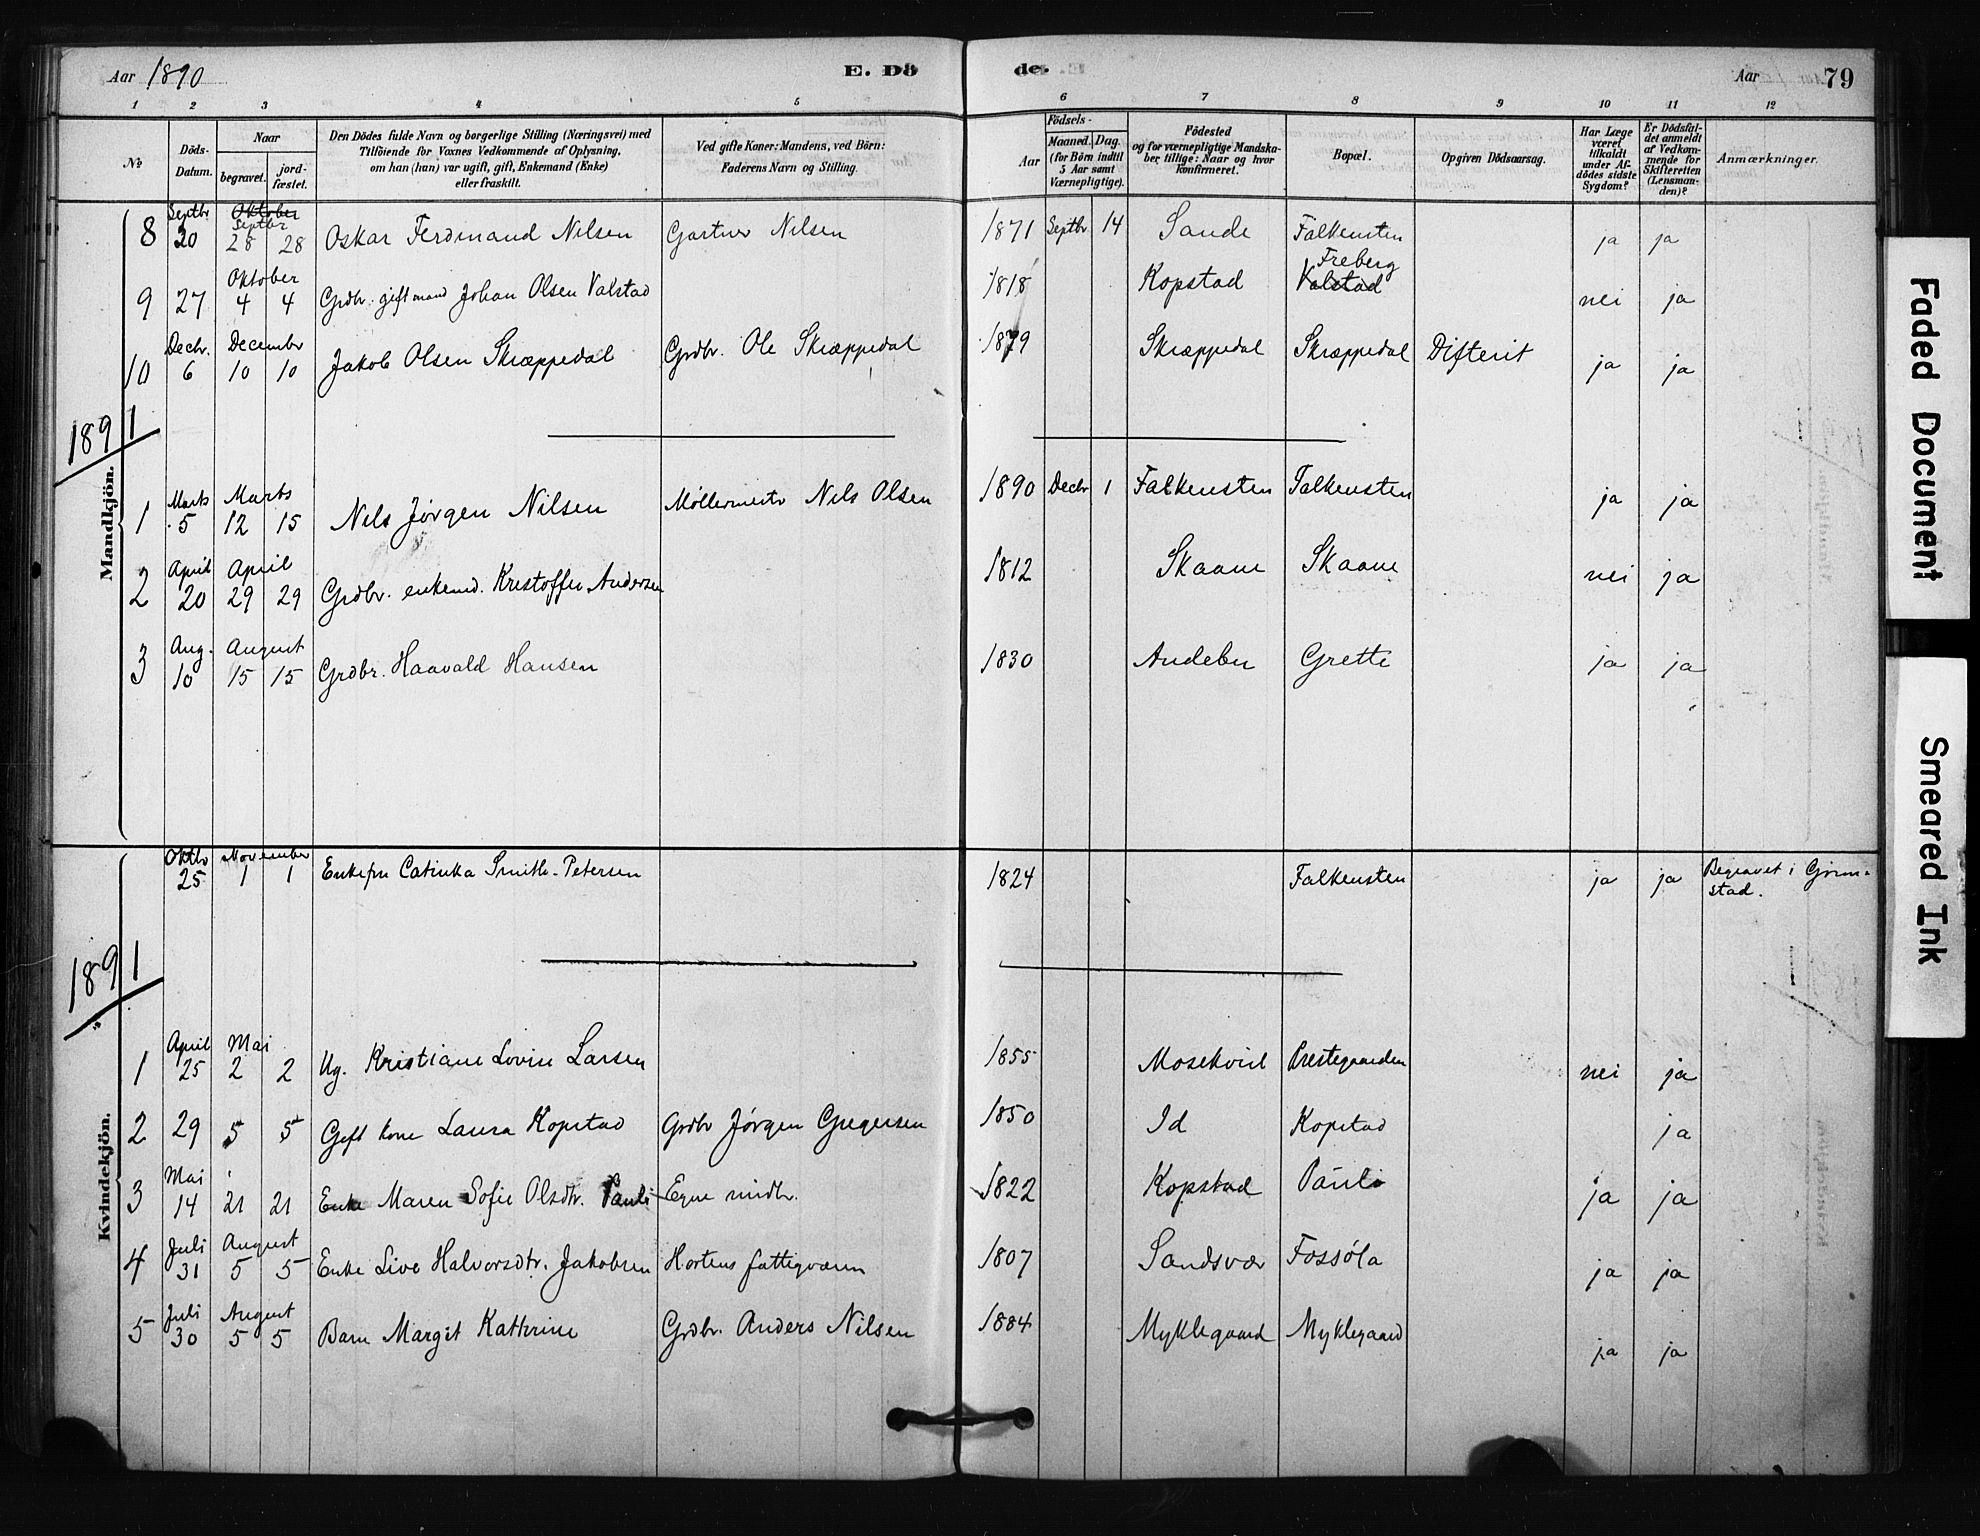 Aar 1890 E. Dö de. Aar 79
1 2 3 4 5 6 7 8 9 10 11 12
No Döds-Datum. Naar begravet. jord-fæstet. Den Dödes fulde Navn og borgerlige Stilling (Næringsvei) med Tilföiende for Voxnes Vedkommende af Oplysning, om han (hun) var ugift, gift, Enkemand (Enke) eller fraskilt. Ved gifte Koner: Mandens, ved Börn: Faderens Navn og Stilling. Födsels- Aar Maaned. Dag. (for Börn indtil 5 Aar samt Værnepligtige). Födested og for værnepligtige Mandskaber tillige: Naar og hvor konfirmeret. Bopæl. Opgiven Dödsaarsag. Har Læge været tilkaldt under Afdödes sidste Sygdom? Er Dödsfaldet anmeldt af Vedkommende for Skifteretten (Lensmanden)? Anmærkninger.
Mandkjön.
8 Septbr 20 Oktober Septbr 28 28 Oskar Ferdinand Nilsen Gartner Nilsen 1871 Septbr 14 Sande Falkensten ja ja
9 27 Oktober 4 4 Grdbr. gift mand Johan Olsen Valstad 1818 Kopstad Freberg Valstad nei ja
10 Decbr. 6 December 10 10 Jakob Olsen Skræppedal Grdbr. Ole Skræppedal 1879 Skræppedal Skræppedal Difterit ja ja
1891
1 Marts 5 Marts 12 15 Nils Jørgen Nilsen Møllermestr Nils Olsen 1890 Decbr 1 Falkensten Falkensten ja ja
2 April 20 April 29 29 Grdbr. enkemd. Kristoffer Andersen 1812 Skaane Skaane nei ja
3 Aug. 10 August 15 15 Grdbr. Haavald Hansen 1830 Andebu Grette ja ja
Kvindekjön.
Oktbr 25 November 1 1 Enkefru Catinka Smith-Petersen 1824 Falkensten ja ja Begravet i Grimstad.
1891
1 April 25 Mai 2 2 Ug. Kristiane Lovise Larsen 1855 Mosekvist Prestegaarden nei ja
2 29 5 5 Gift kone Laura Kopstad Grdbr Jørgen Gregersen 1850 Id Kopstad ja
3 Mai 14 21 21 Enke Maren Sofie Olsdtr. Pauli Egne midlr. 1822 Kopstad Pauli ja ja
4 Juli 31 August 5 5 Enke Live Halvorsdtr. Jakobsen Hortens fattigvæsen 1807 Sandsvær Fossøla ja ja
5 Juli 30 August 5 5 Barn Margit Kathrine Grdbr. Anders Nilsen 1884 Myklegaard Myklegaard ja ja
Faded Document
Smeared Ink